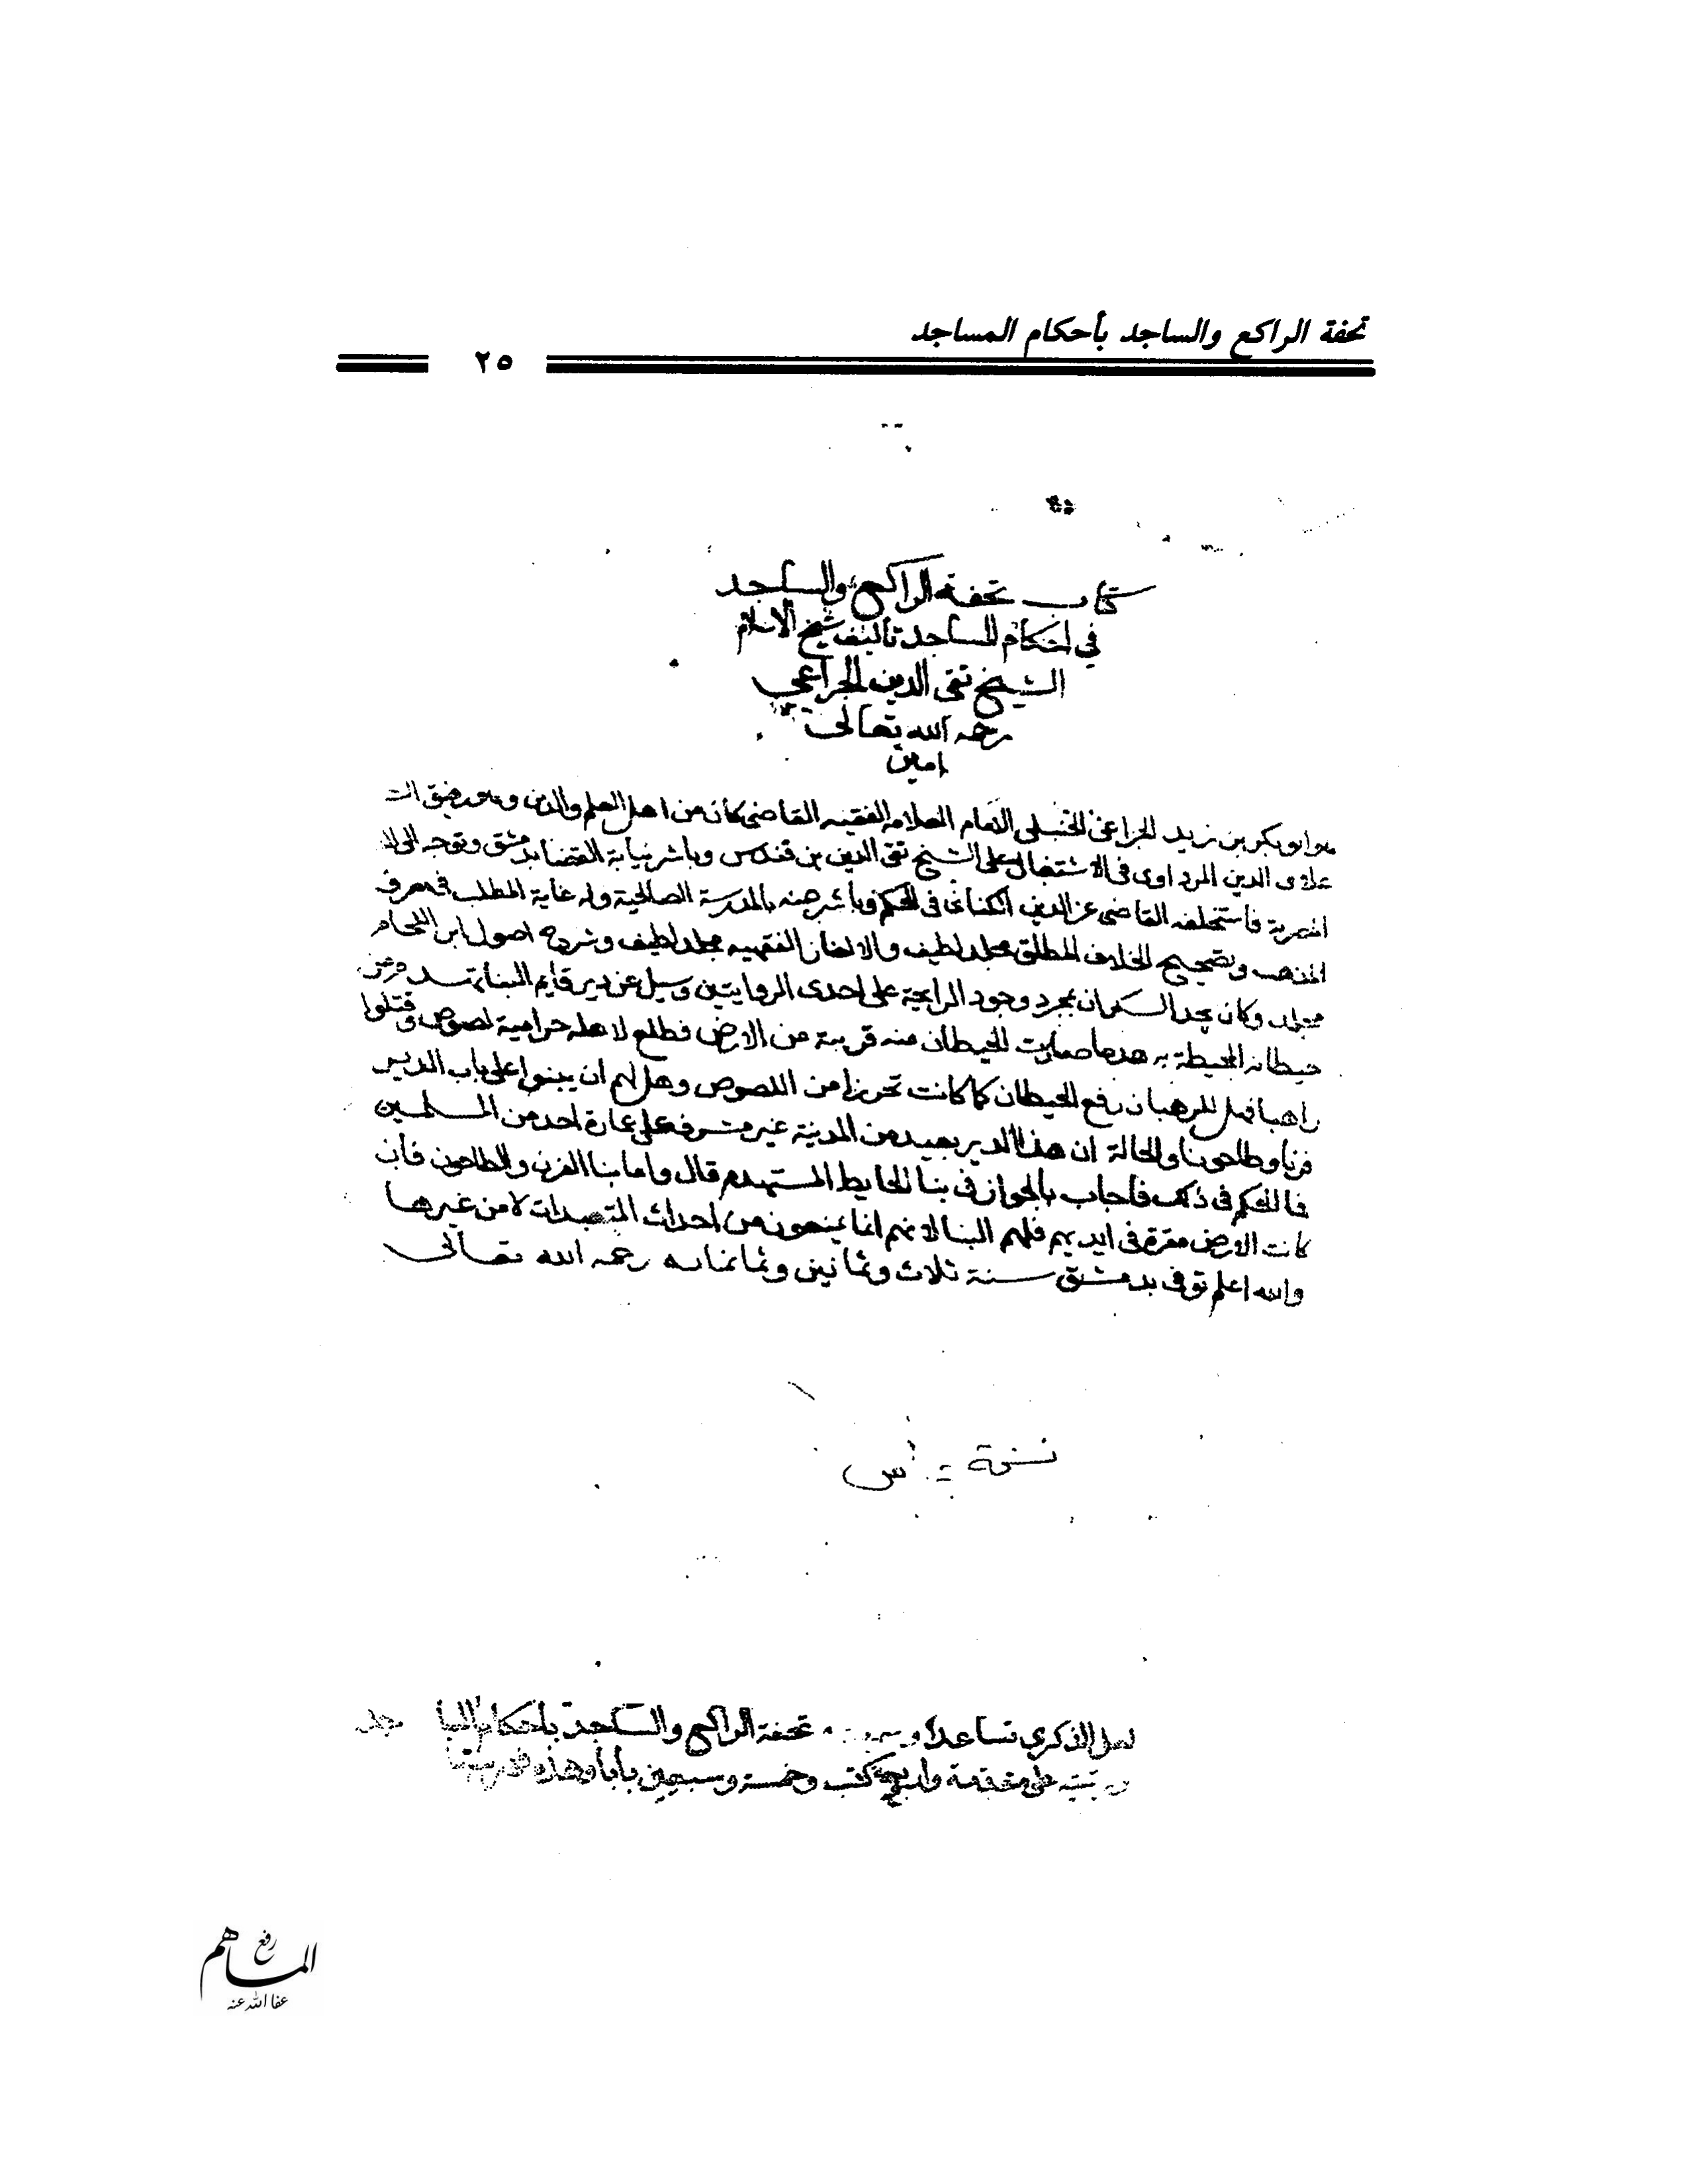 تحفة الراكع والساجد بأحكام المساجد
٢٥
كتاب تحفة الراكع والساجد
في احكام المساجد تاليف شيخ الاسلام
الشيخ تقى الدين الجراعي
رحمه الله تعالى
امين
هو ابو بكر بن زيد الجراعي الحنبلي الامام العلامه الفقيه القاضي كان من اهل العلم والدين وهو رفيق الشـ
علاى الدين المرداوى فى الاشتغال على الشيخ تقى الدين بن قندس وباشر نيابة القضا بدمشق وتوجه الى الد
المصرية فاستخلفه القاضى عز الدين الكنانى فى الحكم وباشر عنه بالمدرسة الصالحية وله غاية المطلب فى معرفة
المذهب وتصحيح الخلاف المطلق مجلد لطيف والالغاز الفقهيه مجلد لطيف وشرح اصول ابن اللحام
مجلد وكان يحد السكران بمجرد وجود الرايحة على احدى الروايتين وسيل عن دير قايم البنا تهـد من
حيطانه المحيطة به هدما صارت الحيطان منه قريبة من الارض فطلع لاهله حرامية لصوص وقتلوا
راهبا فهل للرهبان رفع الحيطان كما كانت تحرزا من اللصوص وهل لهم ان يبنوا على باب الدير
فرنا وطاحونا والحالة ان هذا الدير بعيد من المدينة غير مشرف على عمارة احد من المسلمين
فما الحكم فى ذلك فاجاب بالجواز فى بنا الحايط المستهدم قال واما بنا الفرن والطاحون فان
كانت الارض مقرة فى ايديهم فلهم البنا لانهم انما يمنعون من احداث المتعبدات لا من غيرها
والله اعلم توفى بدمشق سنة ثلاث وثمانين وثمانمايه رحمه الله تعالى
نسخة = س
لعل الذكرى تساعد تحفة الراكع والساجد باحكام
على مقدمة واربعة كتب وخمسة وسبعين بابا وهذه
رفع
المساهم
عفا الله عنه